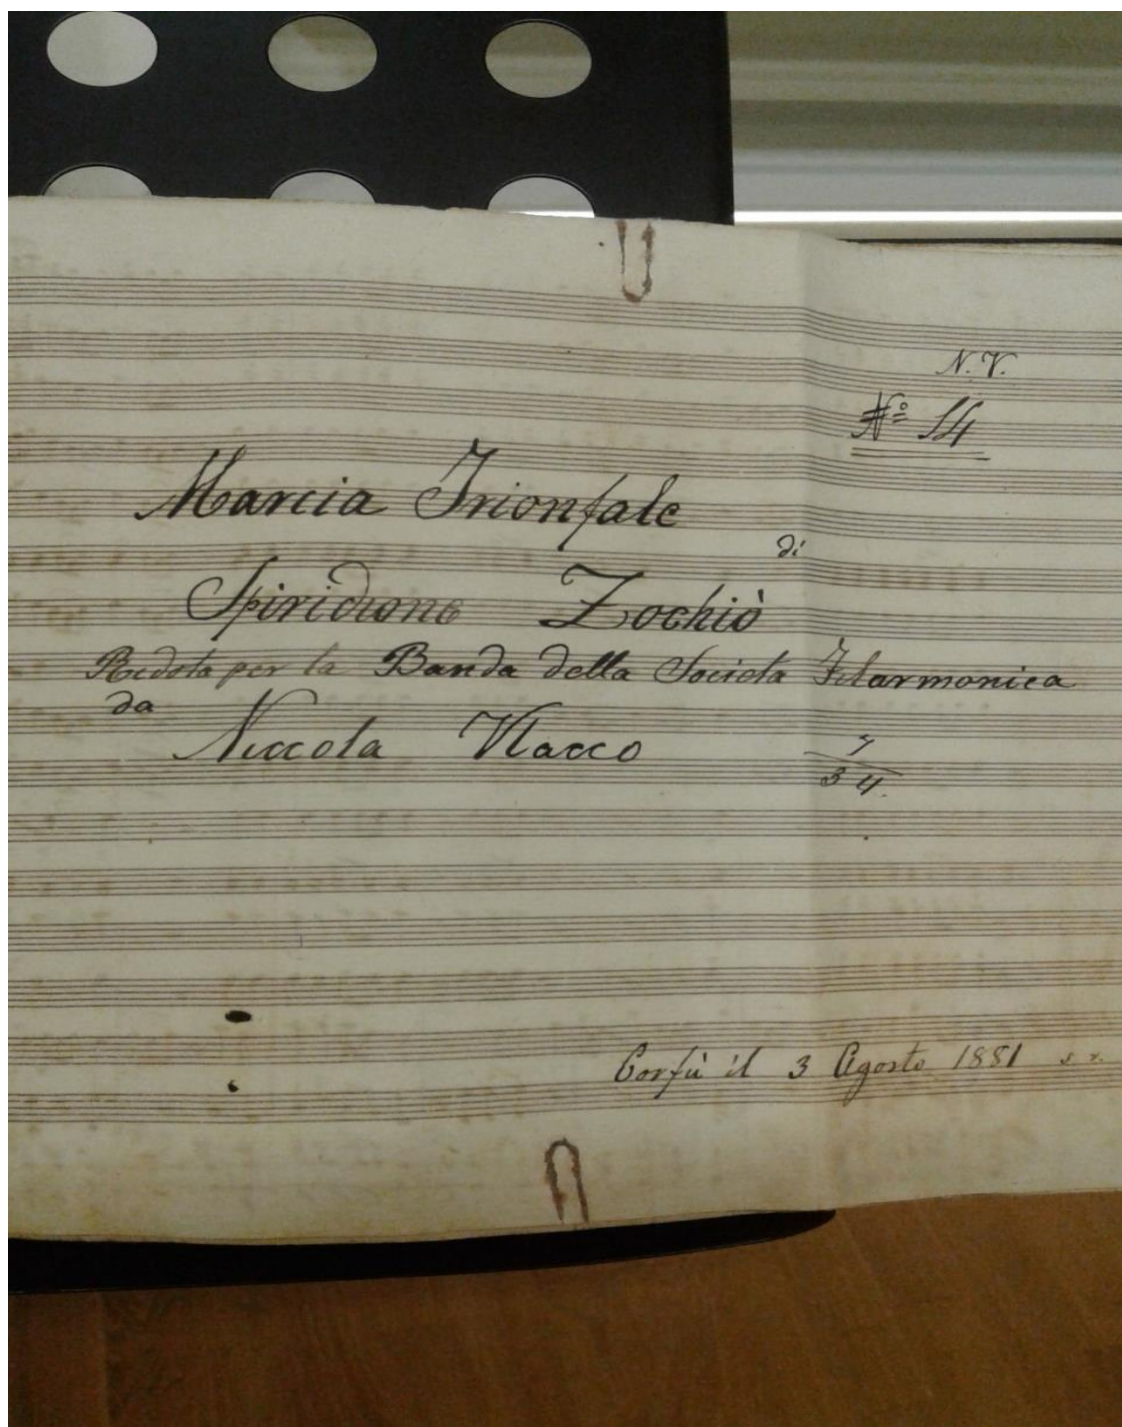 N. V.
Nº 14
Marcia Trionfale
di
Spiridione Zochiò
Redota per la Banda della Societa Filarmonica
da
Niccola Vlacco
7
34.
Corfù il 3 Agosto 1881